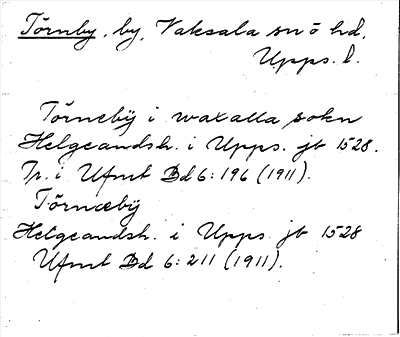 Törnby, by, Vaksala sn ö hd,
Upps. l.
Törnebÿ i waxalla sokn
Helgeandsh. i Upps. jb 1528.
Tr. i Ufmt Bd 6: 196 (1911).
Törnæbÿ
Helgeandsh. i Upps jb 1528
Ufmt Bd 6: 211 (1911).